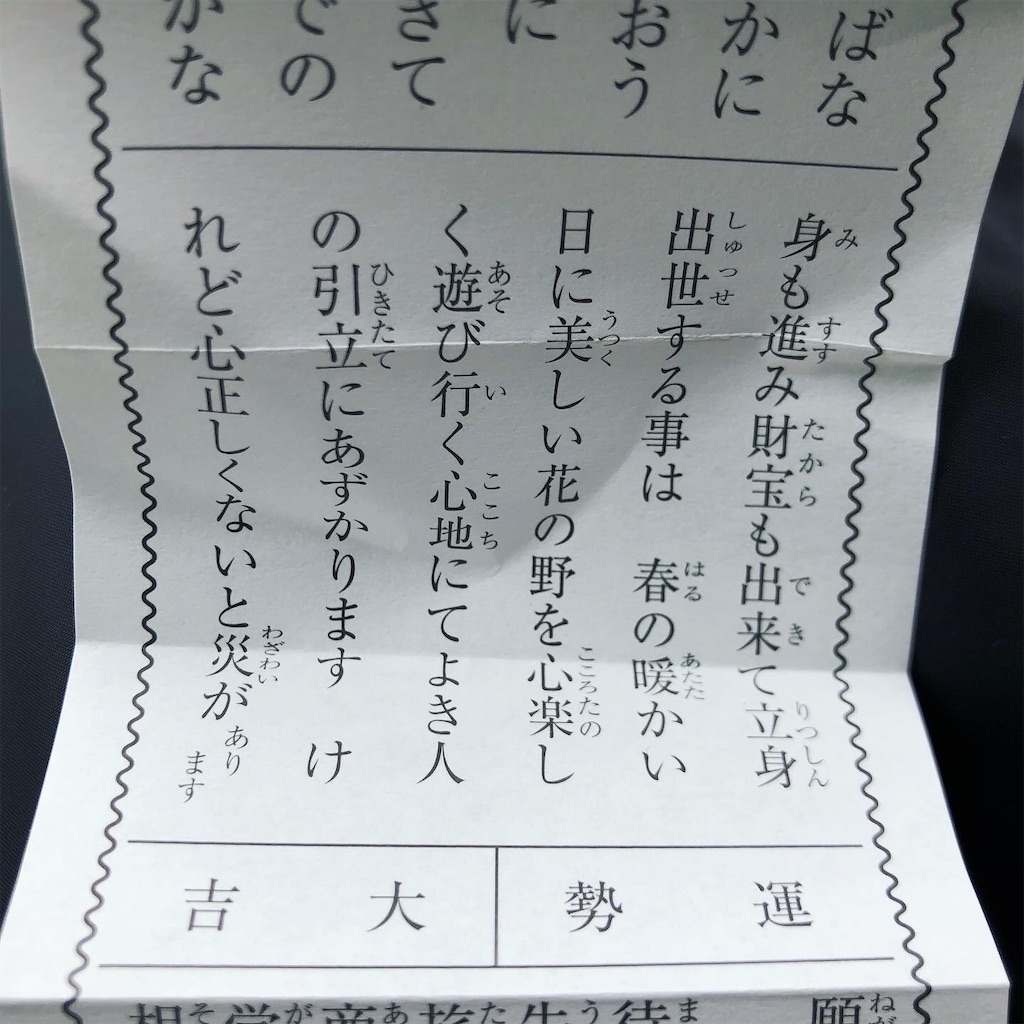 ばな
かに
おう
に
さて
での
かな
身も進み財宝も出来て立身
出世する事は　春の暖かい
日に美しい花の野を心楽し
く遊び行く心地にてよき人
の引立にあずかります　け
れど心正しくないと災があり
ます
運勢
大吉
願
待